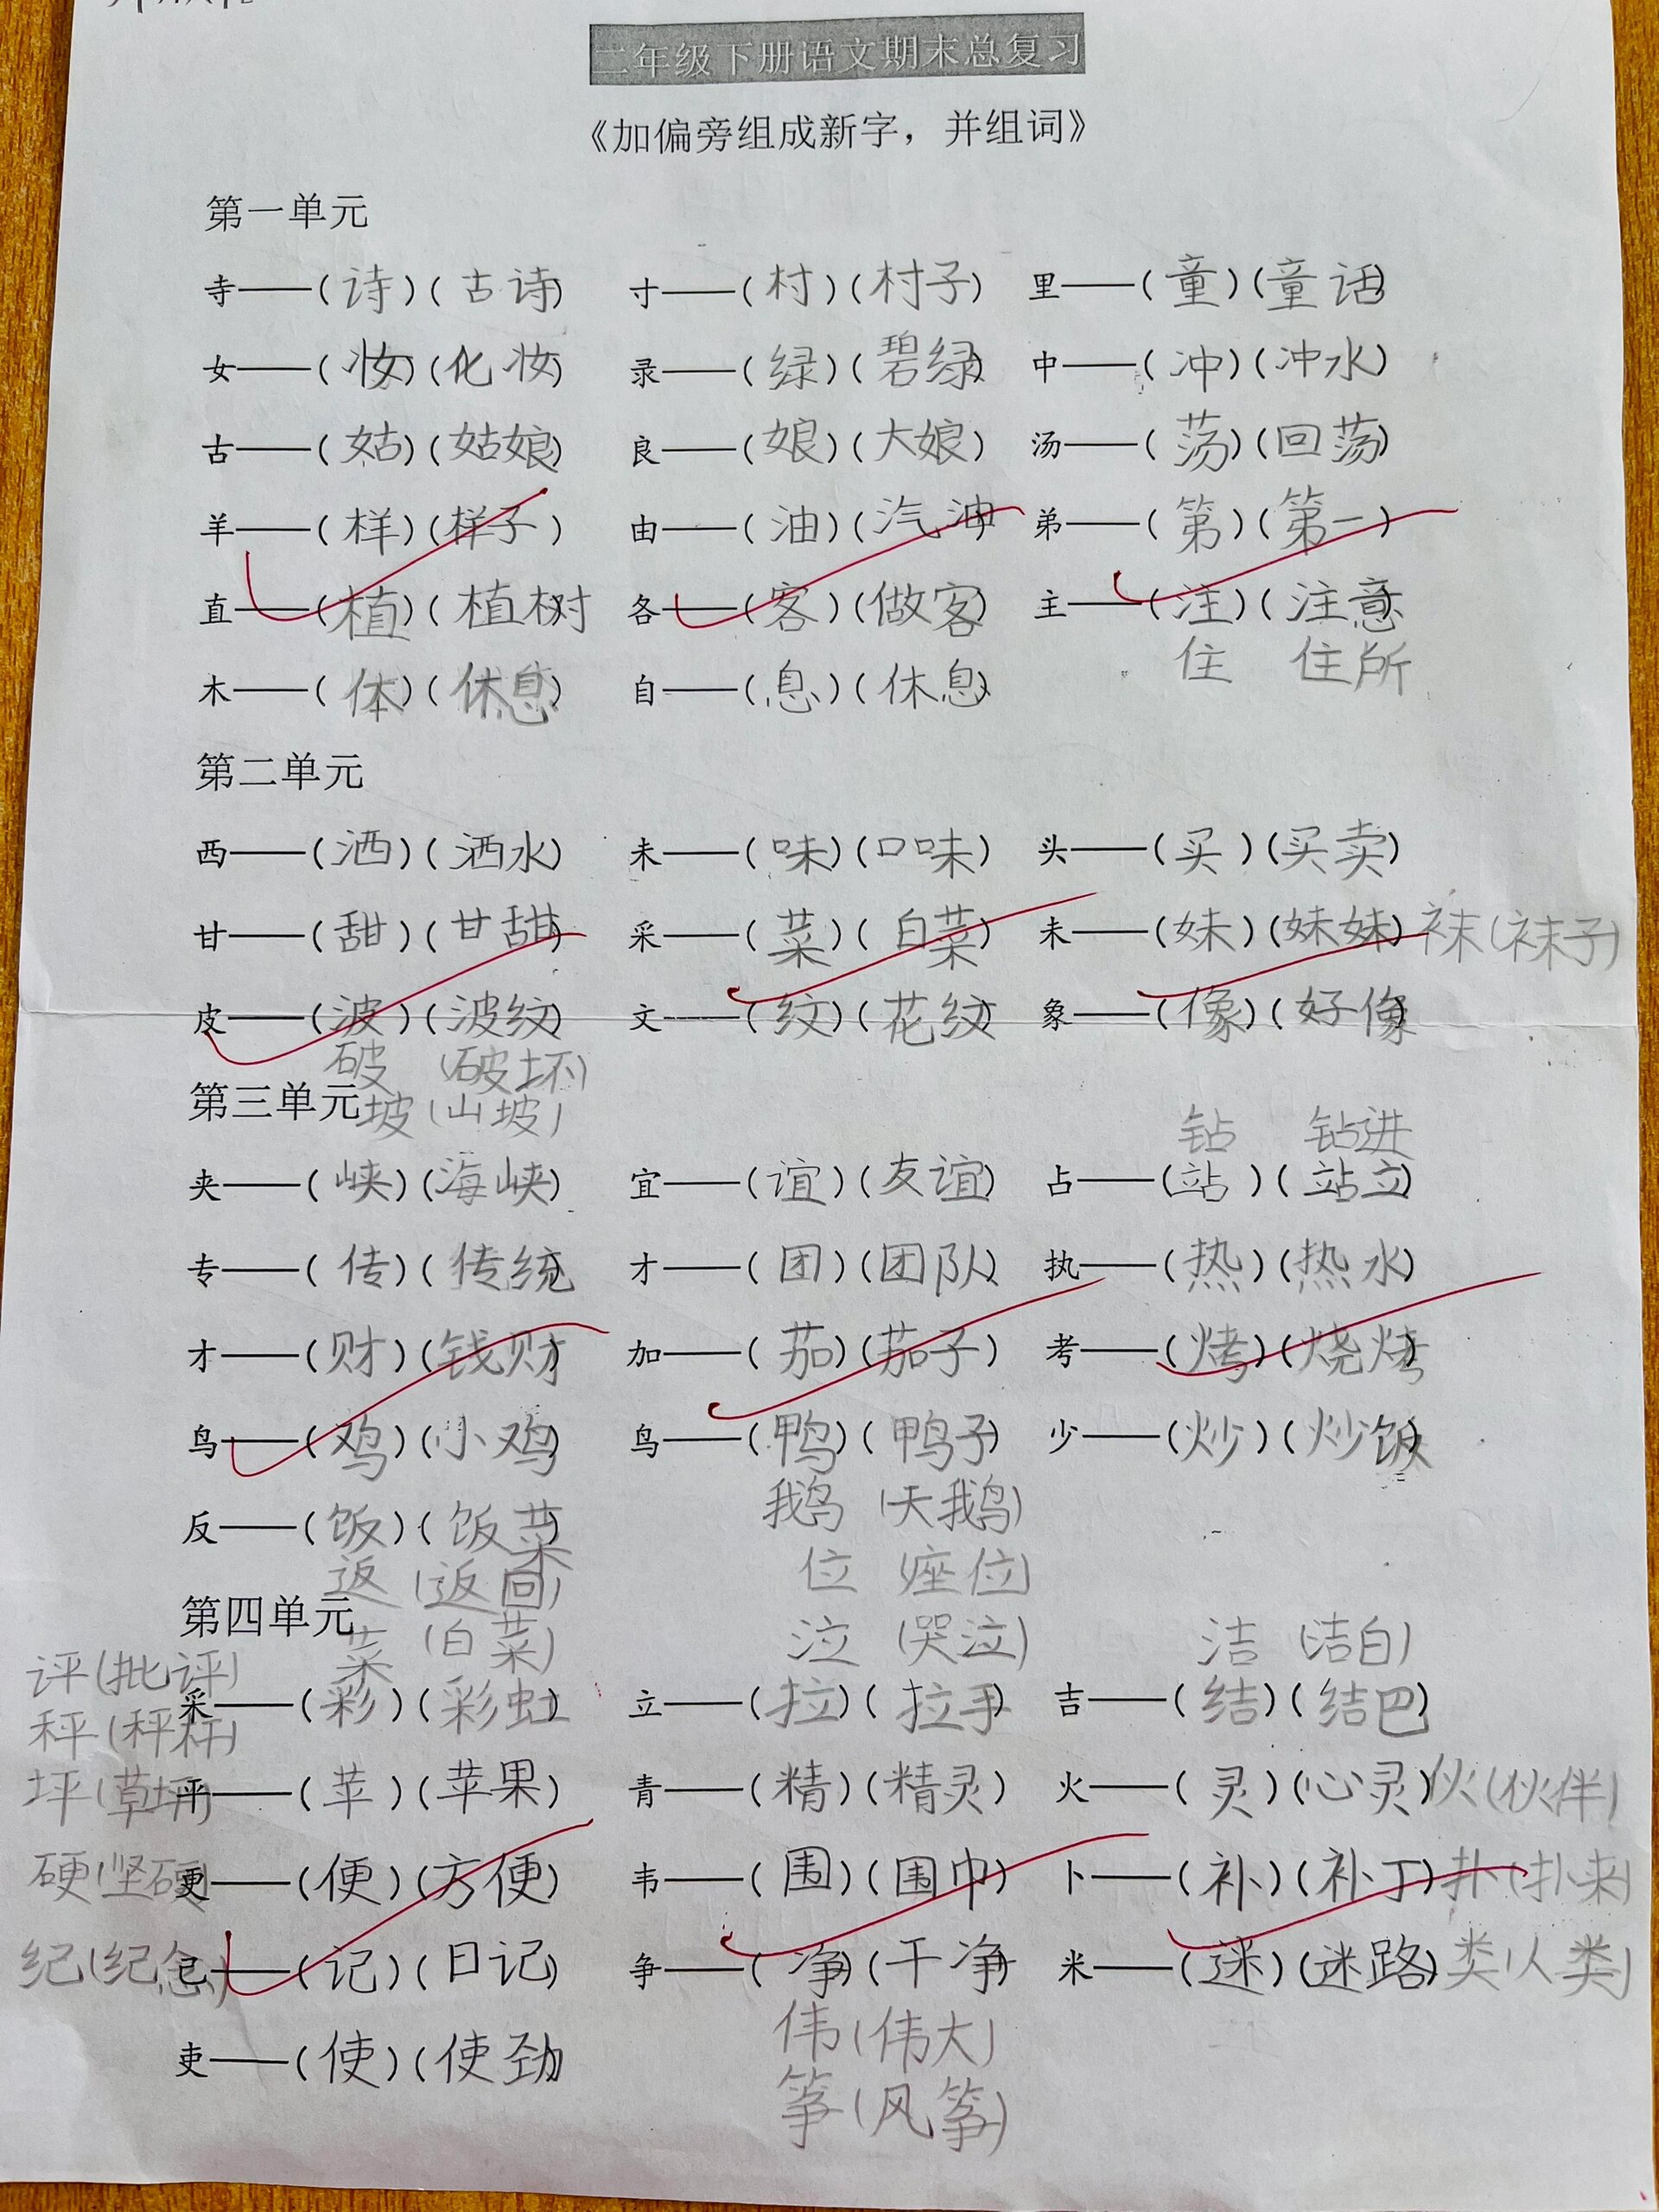 二年级下册语文期末总复习
《加偏旁组成新字，并组词》
第一单元
寺——(诗)(古诗) 寸——(村)(村子) 里——(童)(童话)
女——(妆)(化妆) 录——(绿)(碧绿) 中——(冲)(冲水)
古——(姑)(姑娘) 良——(娘)(大娘) 汤——(荡)(回荡)
羊——(样)(样子) 由——(油)(汽油) 弟——(第)(第一)
直——(植)(植树) 各——(客)(做客) 主——(注)(注意)
住 住所
木——(体)(休息) 自——(息)(休息)
第二单元
西——(洒)(洒水) 未——(味)(口味) 头——(买)(买卖)
甘——(甜)(甘甜) 采——(菜)(白菜) 未——(妹)(妹妹) 袜(袜子)
皮——(波)(波纹) 文——(纹)(花纹) 象——(像)(好像)
破 (破坏)
第三单元 坡(山坡)
钻 钻进
夹——(峡)(海峡) 宜——(谊)(友谊) 占——(站)(站立)
专——(传)(传统) 才——(团)(团队) 执——(热)(热水)
才——(财)(钱财) 加——(茄)(茄子) 考——(烤)(烧烤)
鸟——(鸡)(小鸡) 鸟——(鸭)(鸭子) 少——(炒)(炒饭)
鹅 (天鹅)
反——(饭)(饭菜)
返 (返回) 位 (座位)
第四单元
菜 (白菜) 泣 (哭泣) 洁 (洁白)
评(批评)
采——(彩)(彩虹) 立——(拉)(拉手) 吉——(结)(结巴)
秤(秤杆)
坪(草坪) 平——(苹)(苹果) 青——(精)(精灵) 火——(灵)(心灵) 伙(伙伴)
硬(坚硬) 更——(便)(方便) 韦——(围)(围巾) 卜——(补)(补丁) 扑(扑来)
纪(纪念) 己——(记)(日记) 争——(净)(干净) 米——(迷)(迷路) 类(人类)
伟(伟大)
吏——(使)(使劲)
筝(风筝)